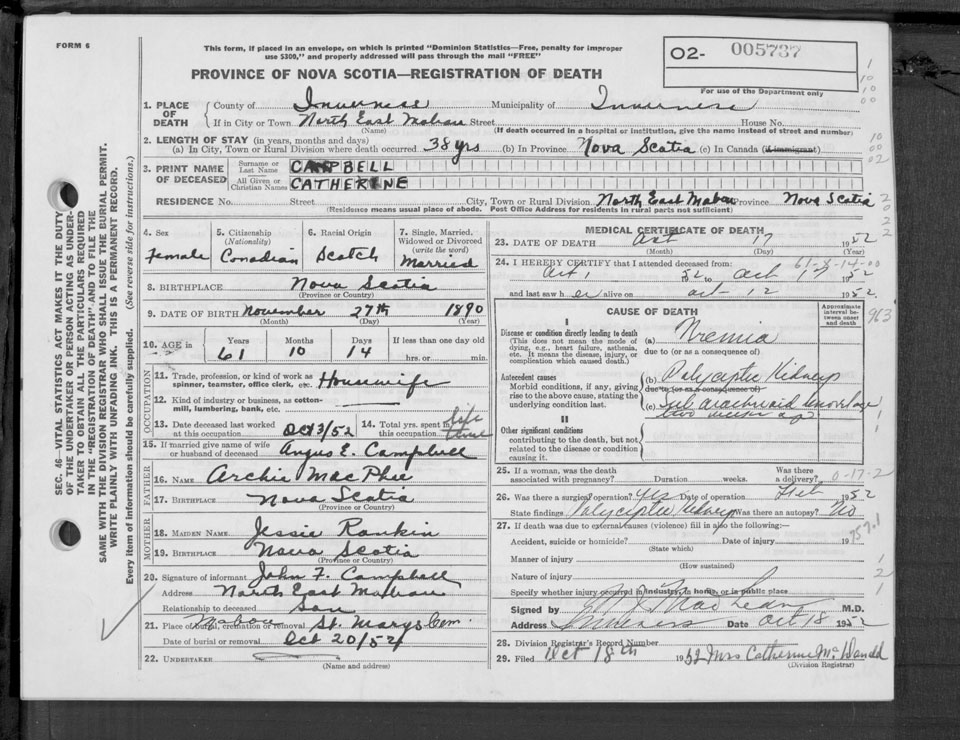 FORM 6
This form, if placed in an envelope, on which is printed "Dominion Statistics—Free, penalty for improper
use $300," and properly addressed will pass through the mail "FREE"
PROVINCE OF NOVA SCOTIA—REGISTRATION OF DEATH
O2- 005737
For use of the Department only
1. PLACE OF DEATH
County of Inverness Municipality of Inverness
If in City or Town North East Mabou Street House No.
(Name) (If death occurred in a hospital or institution, give the name instead of street and number)
2. LENGTH OF STAY (in years, months and days)
(a) In City, Town or Rural Division where death occurred 38 yrs (b) In Province Nova Scotia (c) In Canada (if immigrant)
3. PRINT NAME OF DECEASED
Surname or Last Name CAMPBELL
All Given or Christian Names CATHERINE
RESIDENCE No. Street City, Town or Rural Division North East Mabou Province Nova Scotia
(Residence means usual place of abode. Post Office Address for residents in rural parts not sufficient)
4. Sex Female
5. Citizenship (Nationality) Canadian
6. Racial Origin Scotch
7. Single, Married, Widowed or Divorced (write the word) Married
8. BIRTHPLACE Nova Scotia
(Province or Country)
9. DATE OF BIRTH November 27th 1890
(Month) (Day) (Year)
10. AGE in Years 61 Months 10 Days 14 If less than one day old
hrs. or min.
OCCUPATION
11. Trade, profession, or kind of work as
spinner, teamster, office clerk, etc. Housewife
12. Kind of industry or business, as cotton-
mill, lumbering, bank, etc.
13. Date deceased last worked
at this occupation Oct 3/52
14. Total yrs. spent in
this occupation life time
15. If married give name of wife
or husband of deceased Angus E. Campbell
FATHER
16. NAME Archie MacPhee
17. BIRTHPLACE Nova Scotia
(Province or Country)
MOTHER
18. MAIDEN NAME Jessie Rankin
19. BIRTHPLACE Nova Scotia
(Province or Country)
20. Signature of informant John F. Campbell
Address North East Mabou
Relationship to deceased Son
21. Place of burial, cremation or removal Mabou St. Marys Cem.
Date of burial or removal Oct 20/52
22. UNDERTAKER
(Name and address)
MEDICAL CERTIFICATE OF DEATH
23. DATE OF DEATH Oct 17 1952
(Month) (Day) (Year)
24. I HEREBY CERTIFY that I attended deceased from:
Oct 1 52 to Oct 17 1952
and last saw her alive on Oct 12 1952.
CAUSE OF DEATH
Approximate interval between onset and death
I
Disease or condition directly leading to death
(This does not mean the mode of
dying, e.g., heart failure, asthenia,
etc. It means the disease, injury, or
complication which caused death.)
(a) Uremia
due to (or as a consequence of)
Antecedent causes
Morbid conditions, if any, giving
rise to the above cause, stating the
underlying condition last.
(b) Polycystic Kidneys
due to (or as a consequence of)
(c) Sub Arachnoid
II
Other significant conditions
contributing to the death, but not
related to the disease or condition
causing it.
25. If a woman, was the death
associated with pregnancy? Duration weeks. Was there
a delivery?
26. Was there a surgical operation? yes Date of operation Feb 1952
State findings Polycystic Kidneys Was there an autopsy? No
27. If death was due to external causes (violence) fill in also the following:—
Accident, suicide or homicide? Date of injury 19
(State which)
Manner of injury
(How sustained)
Nature of injury
Specify whether injury occurred in industry, in home, or in public place
Signed by MacLean M.D.
Address Inverness Date Oct 18 1952
28. Division Registrar's Record Number
29. Filed Oct 18th 1952 Mrs Catherine McDonald
(Division Registrar)
SEC. 46—VITAL STATISTICS ACT MAKES IT THE DUTY
OF THE UNDERTAKER OR PERSON ACTING AS UNDER-
TAKER TO OBTAIN ALL THE PARTICULARS REQUIRED
IN THE "REGISTRATION OF DEATH" AND TO FILE THE
SAME WITH THE DIVISION REGISTRAR WHO SHALL ISSUE THE BURIAL PERMIT.
WRITE PLAINLY WITH UNFADING INK. THIS IS A PERMANENT RECORD.
Every item of information should be carefully supplied. (See reverse side for instructions.)